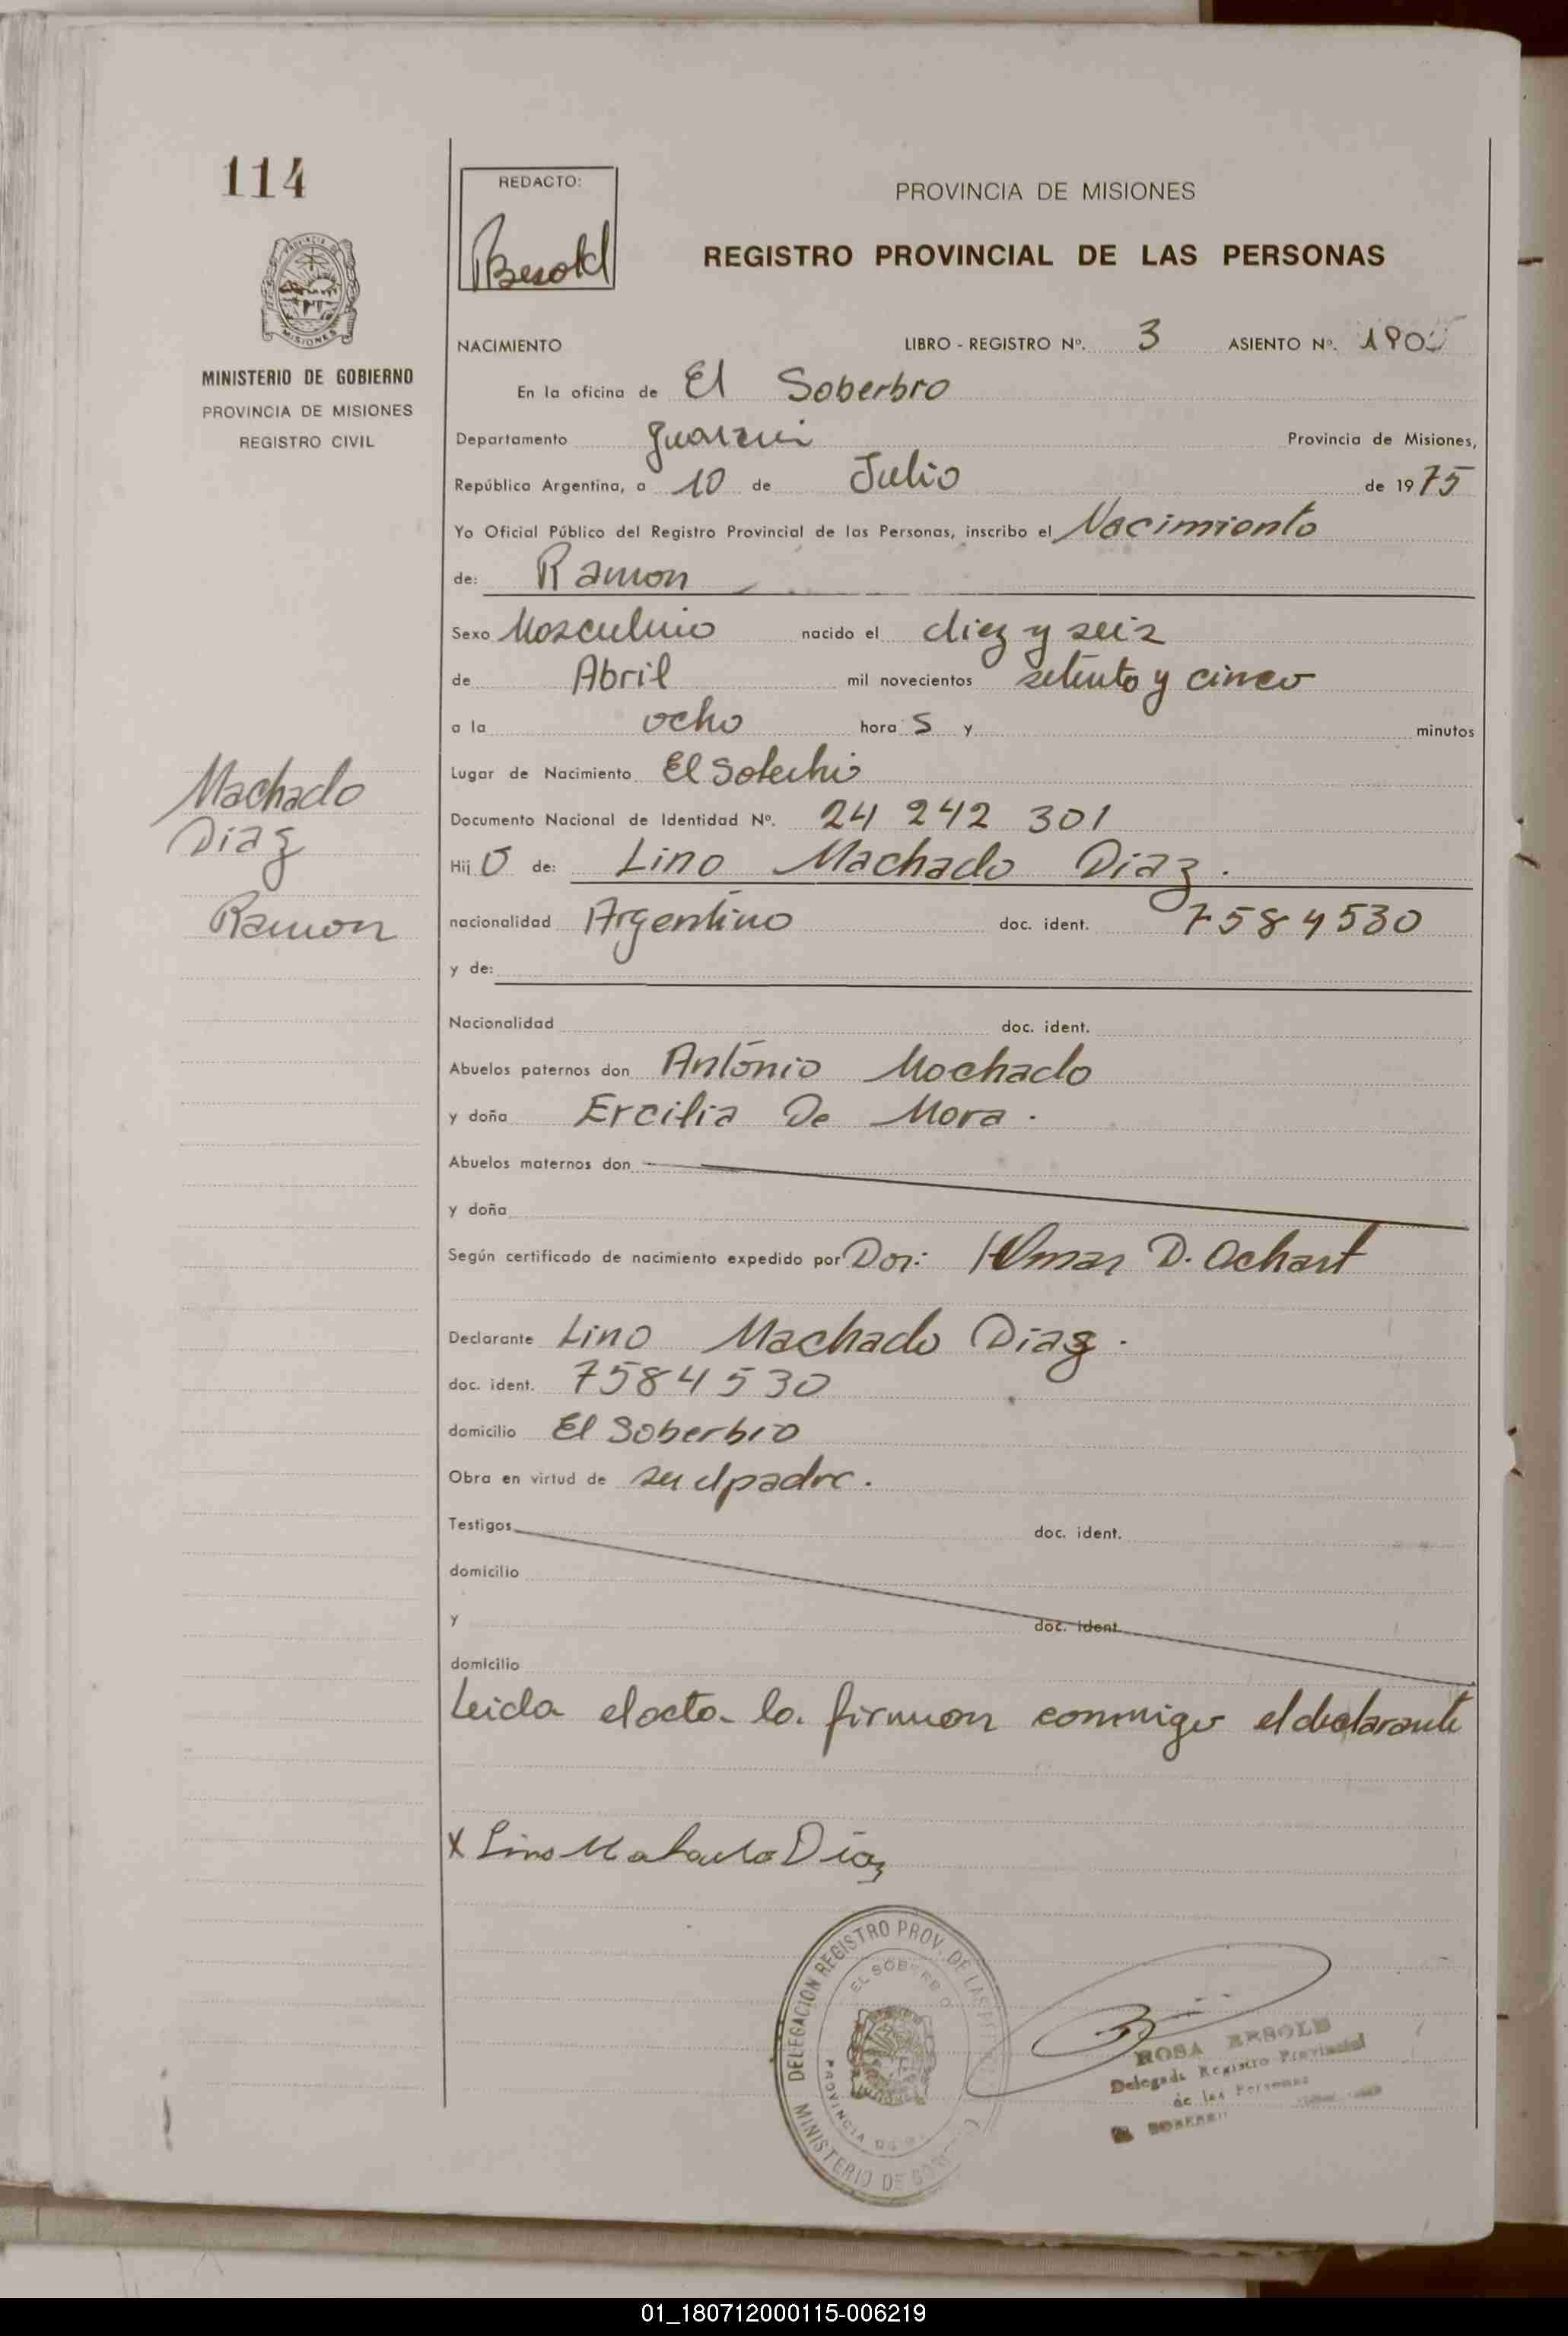 114
MINISTERIO DE GOBIERNO
PROVINCIA DE MISIONES
REGISTRO CIVIL
Machado
Diaz
Ramon
REDACTO:
Besold
PROVINCIA DE MISIONES
REGISTRO PROVINCIAL DE LAS PERSONAS
NACIMIENTO LIBRO - REGISTRO Nº. 3 ASIENTO Nº.
En la oficina de El Soberbio
Departamento Guarani Provincia de Misiones,
República Argentina, a 10 de Julio de 1975
Yo Oficial Público del Registro Provincial de las Personas, inscribo el Nacimiento
de: Ramon
Sexo Masculino nacido el diez y seis
de Abril mil novecientos setenta y cinco
a la ocho hora s y minutos
Lugar de Nacimiento El
Documento Nacional de Identidad Nº. 24 242 301
Hij o de: Lino Machado Diaz.
nacionalidad Argentino doc. ident. 7584530
y de:
Nacionalidad doc. ident.
Abuelos paternos don Antonio Machado
y doña Ercilia De Mora.
Abuelos maternos don
y doña
Según certificado de nacimiento expedido por D. Achart
Declarante Lino Machado Diaz.
doc. ident. 7584530
domicilio El Soberbio
Obra en virtud de ser el padre.
Testigos doc. ident.
domicilio
y doc. ident.
domicilio
Leida el acta la firman conmigo el declarante
x Lino Machado Diaz
DELEGACION REGISTRO PROV. DE LAS
EL SOBERBIO
PROVINCIA DE
MINISTERIO DE
ROSA BESOLD
Delegada Registro Provincial
de las Personas
01_180712000115-006219